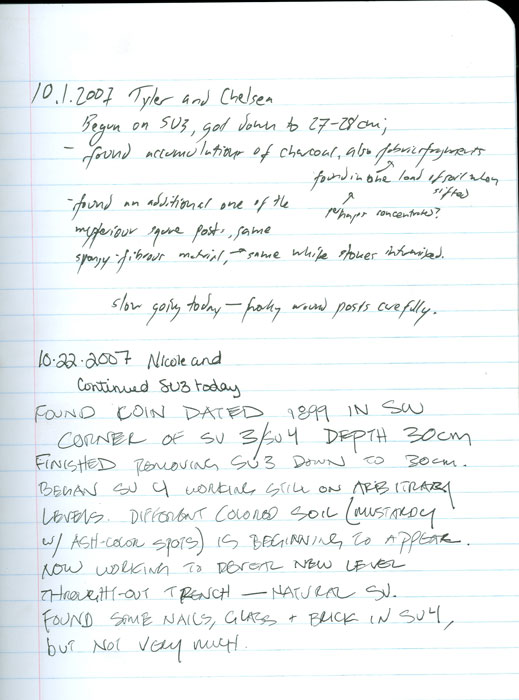 10.1.2007 Tyler and Chelsea
Begun on SU3, got down to 27-28cm;
- found accumulations of charcoal, also fabric fragments
found in one load of soil when
sifted
perhaps concentrated?
- found an additional one of the
mysterious square posts, same
spongy-fibrous material, → same white stones intermixed.
slow going today — around posts carefully.
10.22.2007 Nicole and
Continued SU3 today
FOUND COIN DATED 1899 IN SW
CORNER OF SU 3/SU4 DEPTH 30cm
FINISHED REMOVING SU3 DOWN TO 30cm.
BEGAN SU 4 WORKING STILL ON ARBITRARY
LEVELS. DIFFERENT COLORED SOIL (MUSTARDY
W/ ASH-COLOR SPOTS) IS BEGINNING TO APPEAR.
NOW WORKING TO NEW LEVEL
THROUGHT-OUT TRENCH — NATURAL SU.
FOUND SOME NAILS, GLASS + BRICK IN SU4,
but NOT VERY MUCH.